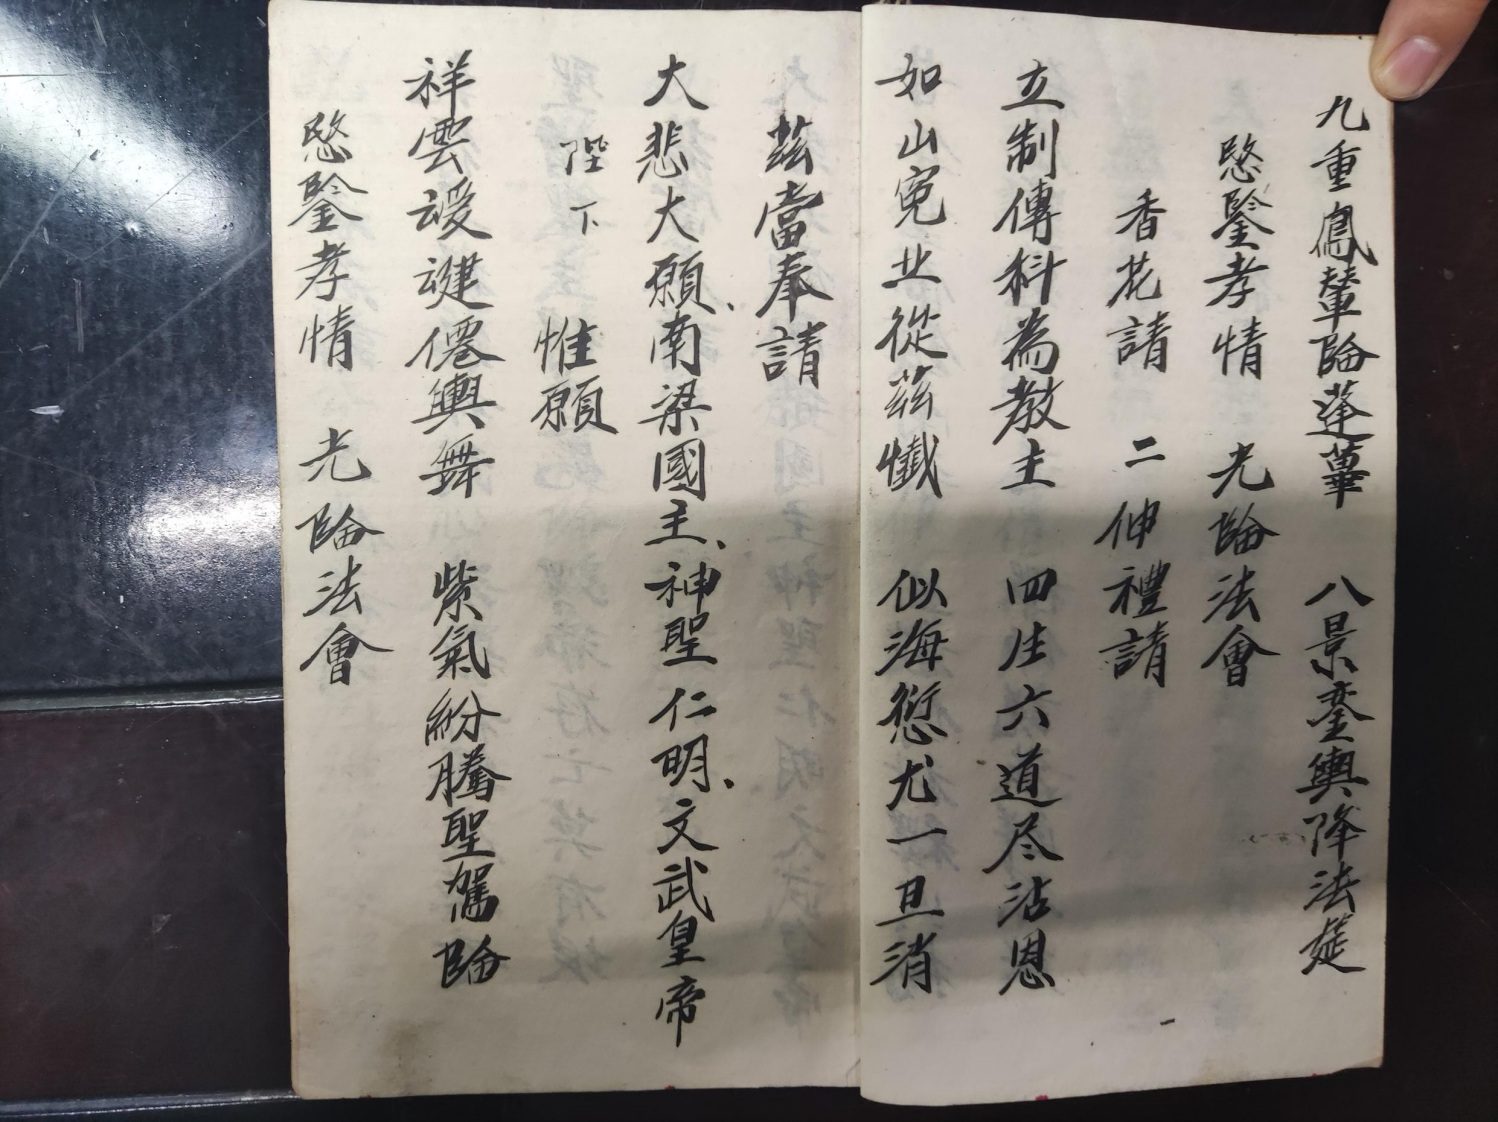 九重鳳輦臨蓬蓽 八景鑾輿降法筵
愍鑒孝情 光臨法會
香花請 二伸禮請
立制傳科為教主 四生六道尽沾恩
如山冤业從茲懺 似海愆尤一旦消
茲當奉請
大悲大願、南梁國主、神聖仁明、文武皇帝
陛下 惟願
祥雲靉靆僊輿舞 紫氣紛騰聖駕臨
愍鑒孝情 光臨法會